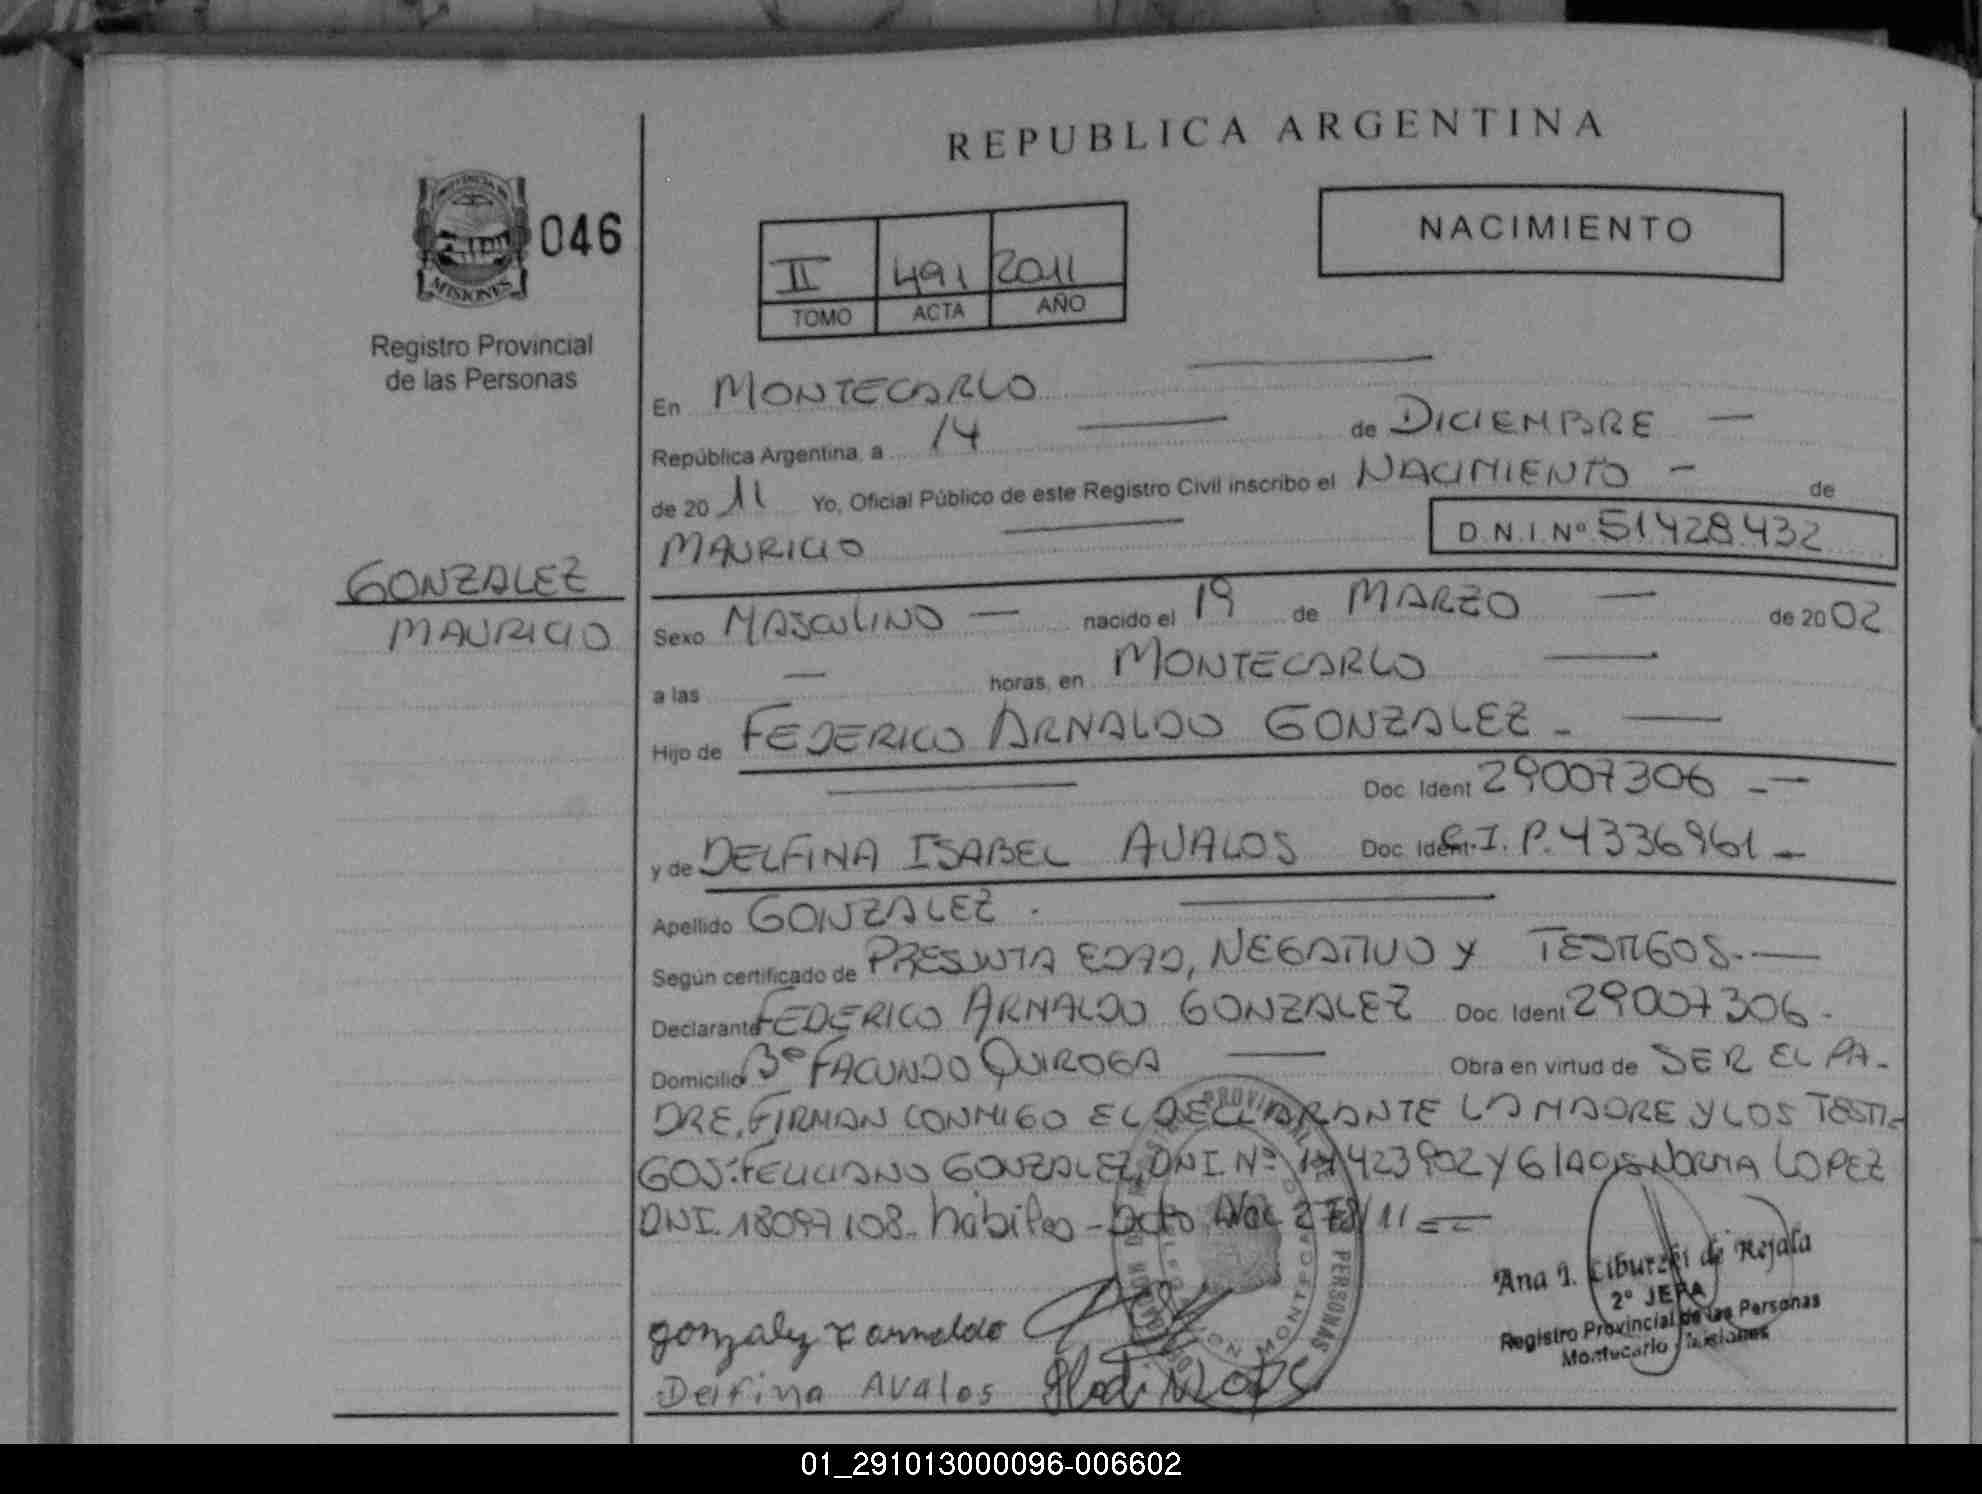 REPUBLICA ARGENTINA
PROVINCIA DE
MISIONES
046
Registro Provincial
de las Personas
NACIMIENTO
II 491 2011
TOMO ACTA AÑO
En MONTECARLO
República Argentina, a 14 de DICIEMBRE
de 2011 Yo, Oficial Público de este Registro Civil inscribo el NACIMIENTO - de
MAURICIO
D.N.I. Nº 51.428.432
GONZALEZ
MAURICIO
Sexo MASCULINO — nacido el 19 de MARZO — de 2002
a las — horas, en MONTECARLO
Hijo de FEDERICO ARNALDO GONZALEZ -
Doc. Ident 29007306 -
y de DELFINA ISABEL AVALOS Doc. Ident. C.I. P. 4336961 -
Apellido GONZALEZ .
Según certificado de PRESUNTA EDAD, NEGATIVO Y TESTIGOS.
Declarante FEDERICO ARNALDO GONZALEZ Doc. Ident 29007306-
Domicilio Bº FACUNDO QUIROGA Obra en virtud de SER EL PA-
DRE. FIRMAN CONMIGO EL DECLARANTE LA MADRE Y LOS TESTI-
GOS: FELICIANO GONZALEZ, DNI Nº Y GLADIS NORMA LOPEZ
DNI. 18097108. hábiles -
gonzalez arnaldo
Delfina AValos
Ana I. Ciburzki de Rejala
2º JEFA
Registro Provincial de las Personas
Montecarlo - Misiones
01_291013000096-006602